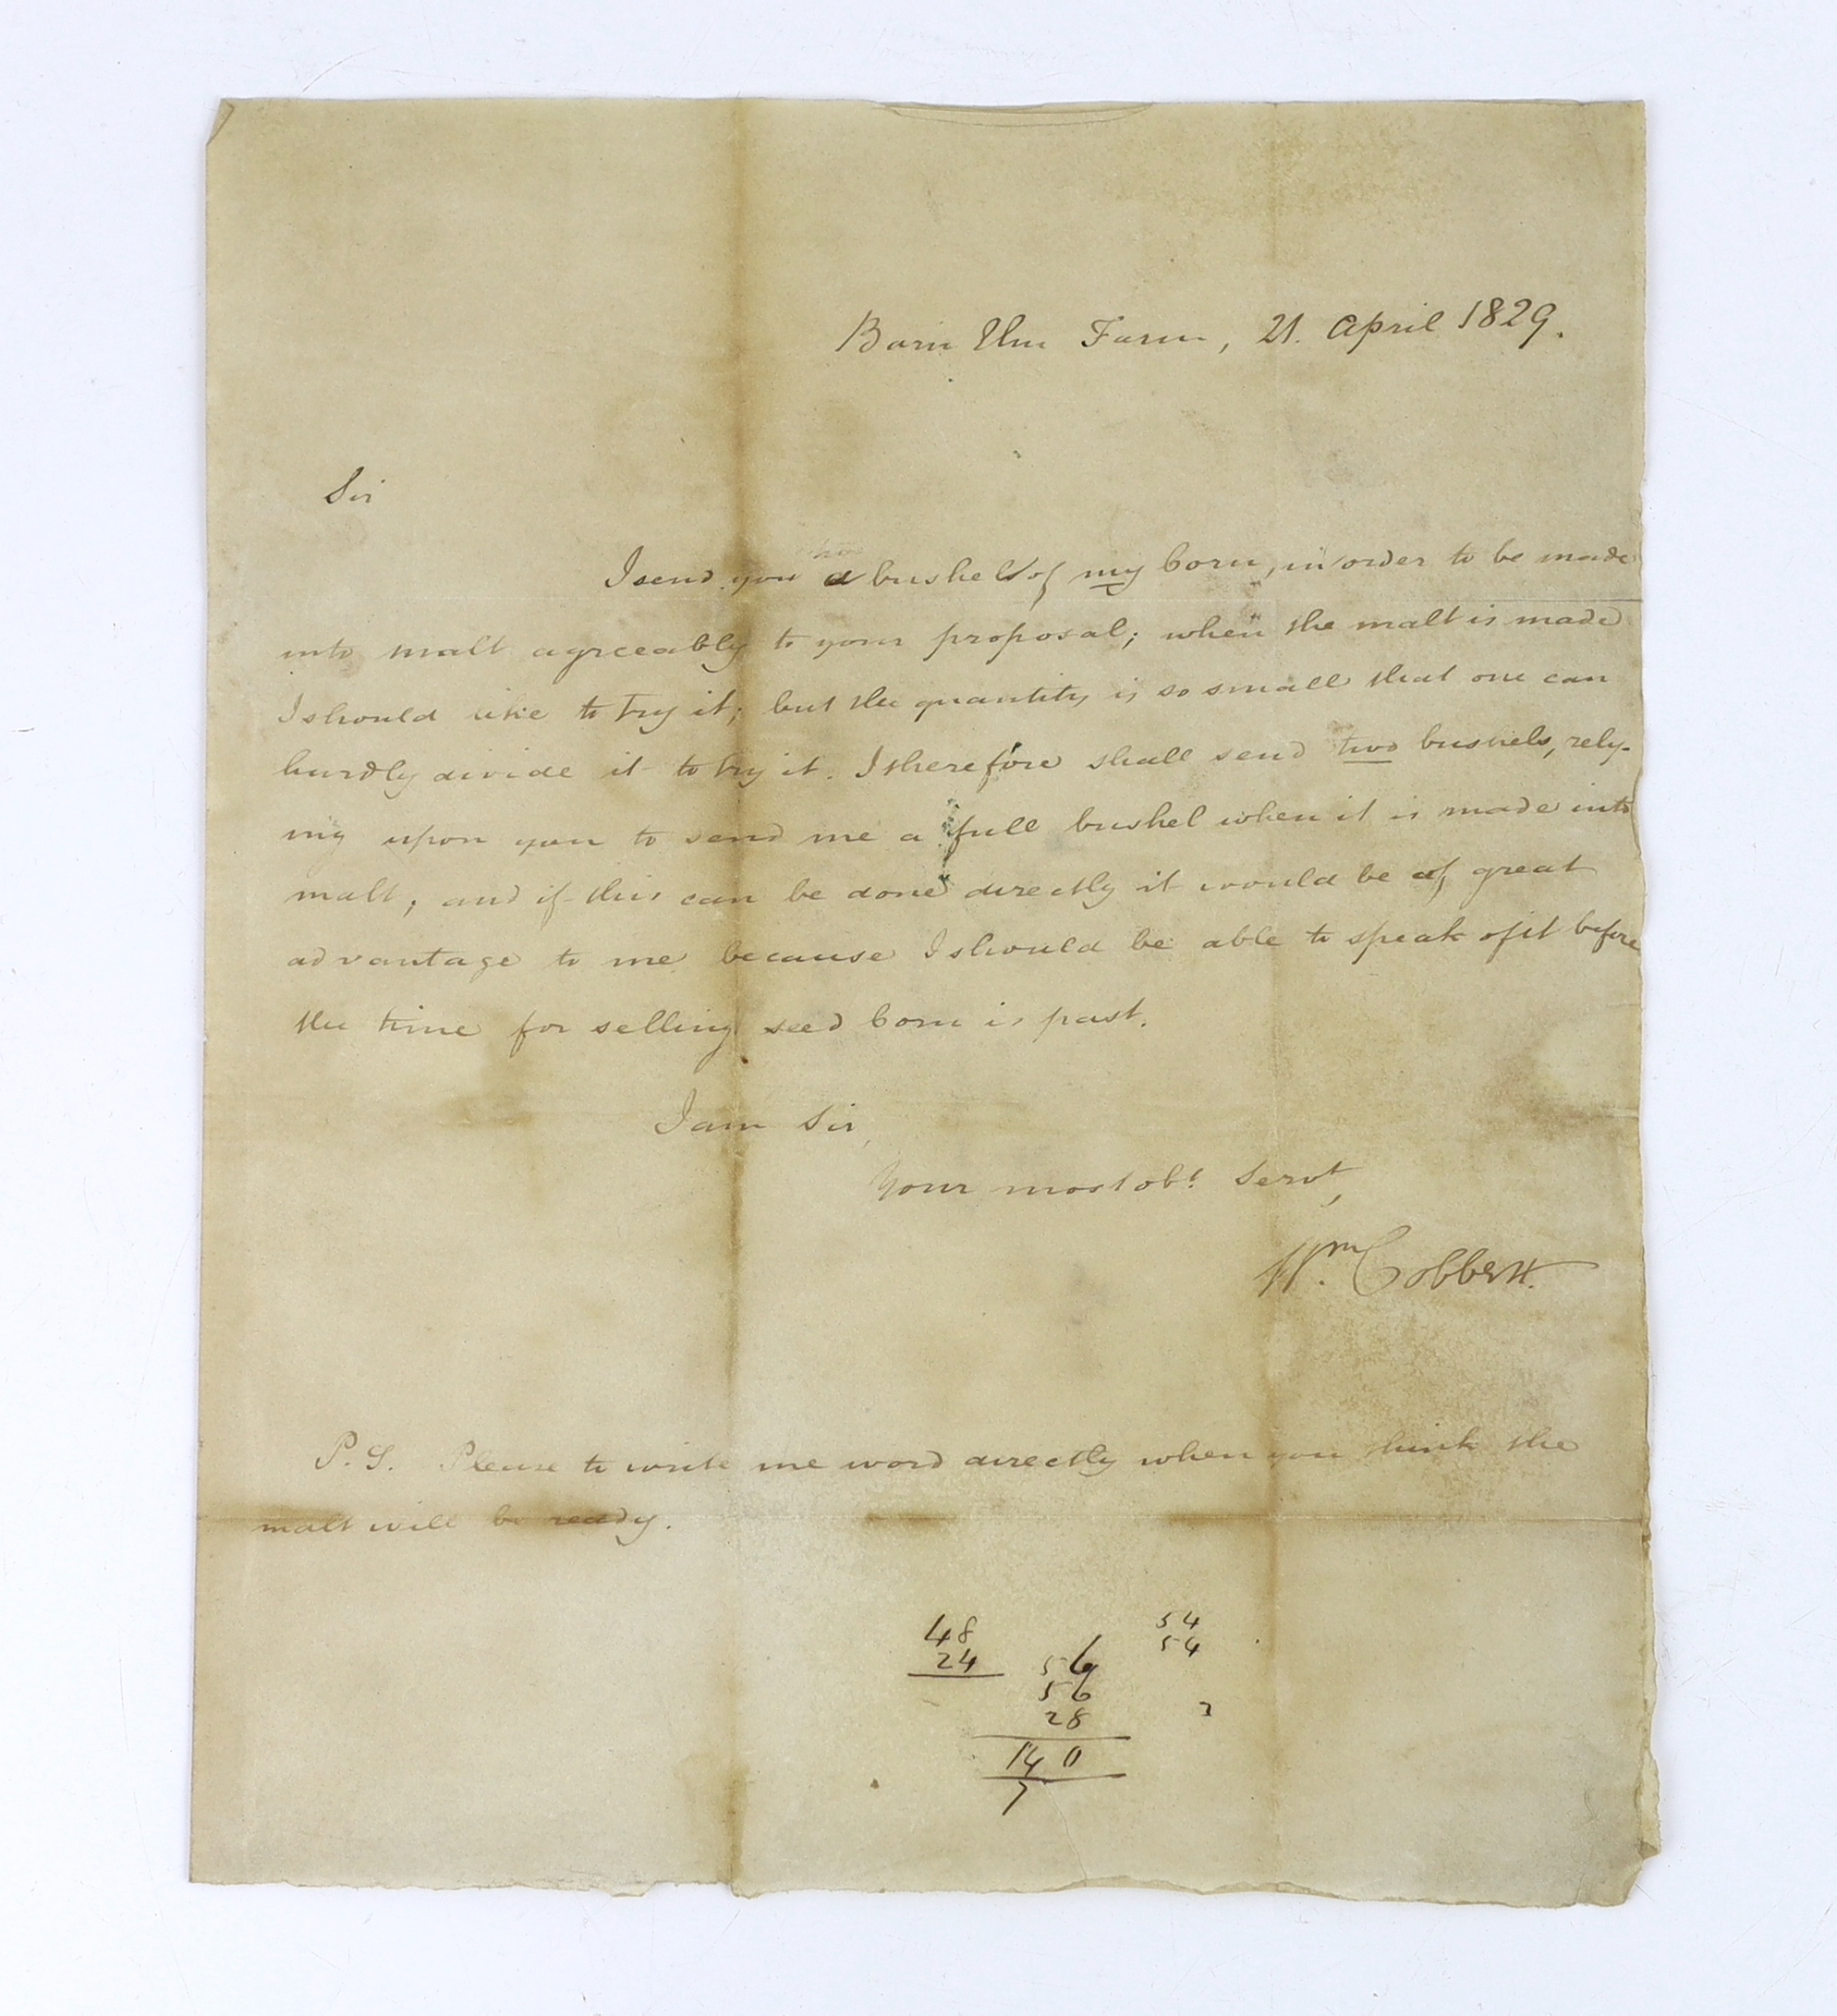 Barn Elm Farm, 21. April 1829.
Sir
I send you a bushel of my Corn, in order to be made
into malt agreeably to your proposal; when the malt is made
I should like to try it; but the quantity is so small that one can
hardly divide it to try it. I therefore shall send two bushels, rely-
ing upon you to send me a full bushel when it is made into
malt; and if this can be done directly it would be of great
advantage to me because I should be able to speak of it before
the time for selling seed Corn is past.
I am Sir,
Your most obt. Servt,
Wm. Cobbett.
P.S. Please to write me word directly when you think the
malt will be ready.
48 54
24 56 54
56
28 2
140
7